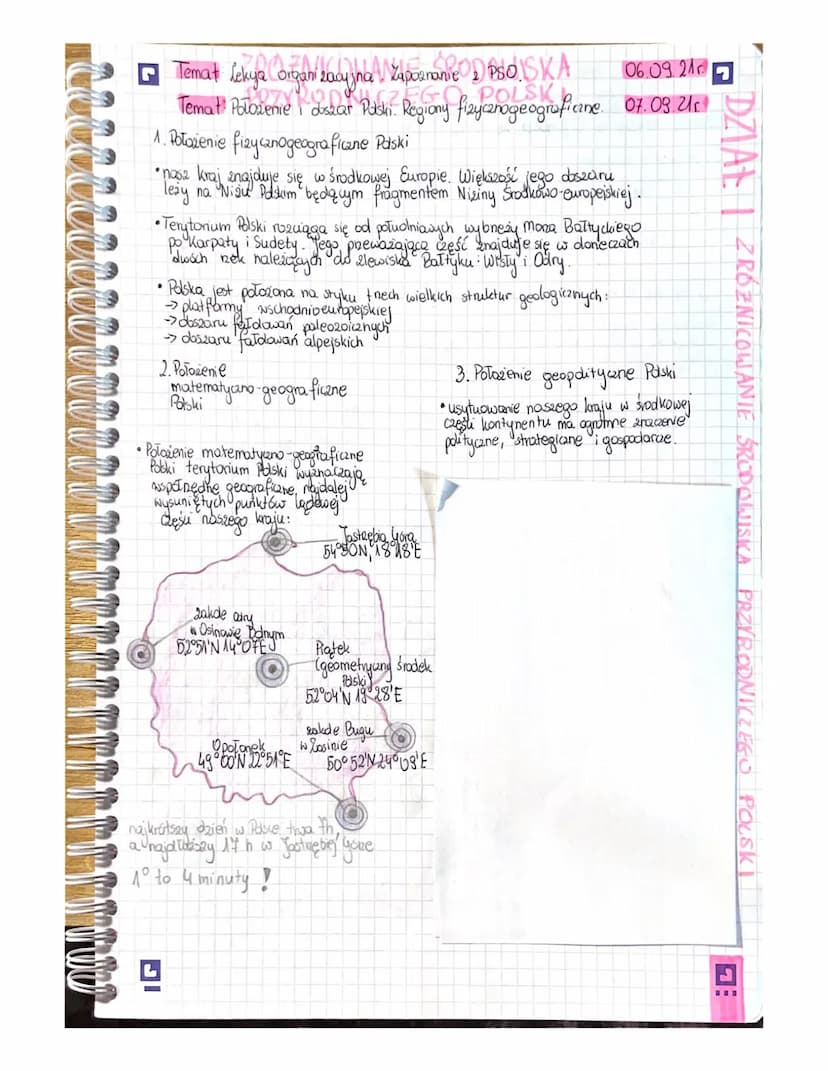 ZRÓŻNICOWANIE ŚRODOWISKA
PRZYRODNICZEGO POLSKI
Temat Lekcja organizacyjna. Zapoznanie z PSO. 06.09.21r.
Temat Położenie i obszar Polski. Regiony fizycznogeograficzne. 07.09.21r.
DZIAŁ I ZRÓŻNICOWANIE ŚRODOWISKA PRZYRODNICZEGO POLSKI
1. Położenie fizycznogeograficzne Polski
• nasz kraj znajduje się w środkowej Europie. Większość jego obszaru
leży na Niżu Polskim będącym fragmentem Niziny Środkowo-europejskiej.
• Terytorium Polski rozciąga się od południowych wybrzeży Morza Bałtyckiego
po Karpaty i Sudety. Jego przeważająca część znajduje się w dorzeczach
dwóch rzek należących do zlewiska Bałtyku: Wisły i Odry.
• Polska jest położona na styku trzech wielkich struktur geologicznych:
→ platformy wschodnioeuropejskiej
→ obszaru fałdowań paleozoicznych
→ obszaru fałdowań alpejskich
2. Położenie
matematyczno-geograficzne
Polski
• Położenie matematyczno-geograficzne
Polski terytorium Polski wyznaczają
współrzędne geograficzne najdalej
wysuniętych punktów lądowej
części naszego kraju:
3. Położenie geopolityczne Polski
• usytuowanie naszego kraju w środkowej
części kontynentu ma ogromne znaczenie
polityczne, strategiczne i gospodarcze.
Jastrzębia Góra
54°50N, 18°18'E
zakole Odry
w Osinowie Dolnym
52°51'N 14°07'E
Piątek
(geometryczny środek
Polski)
52°04'N 19°28'E
zakole Bugu
w Zosinie
50°52'N 24°09'E
Opołonek
49°00'N 22°51'E
najkrótszy dzień w Polsce trwa 7h,
a najdłuższy 17 h w Jastrzębiej Górze
1° to 4 minuty !